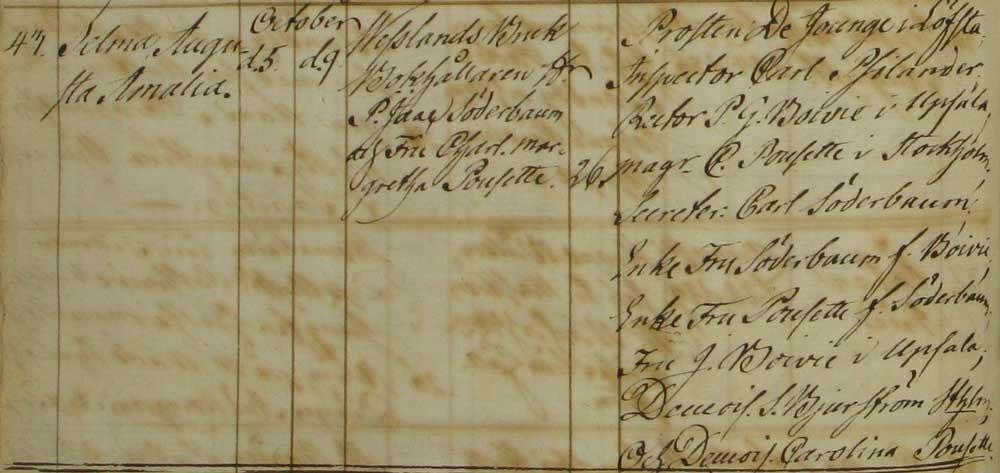 47. Selma Augu-
sta Amalia.
October
d. 5. d. 9.
Wesslands Bruk
Bokhållaren Hr
P. Isac Söderbaum
och Fru Charl. mar-
gretha Pousette. 26.
Prosten De Jounge i Löfsta,
Inspector Carl Psilander.
Rector P. G. Boivie i Upsala,
magr. C. Pousette i Stockholm.
Secreter: Carl Söderbaum.
Enke Fru Söderbaum f. Boivie,
Enke Fru Pousette f. Söderbaum.
Fru J. Boivie i Upsala,
Demois. S. Bjurström Sthlm,
Och Demois. Carolina Pousette.